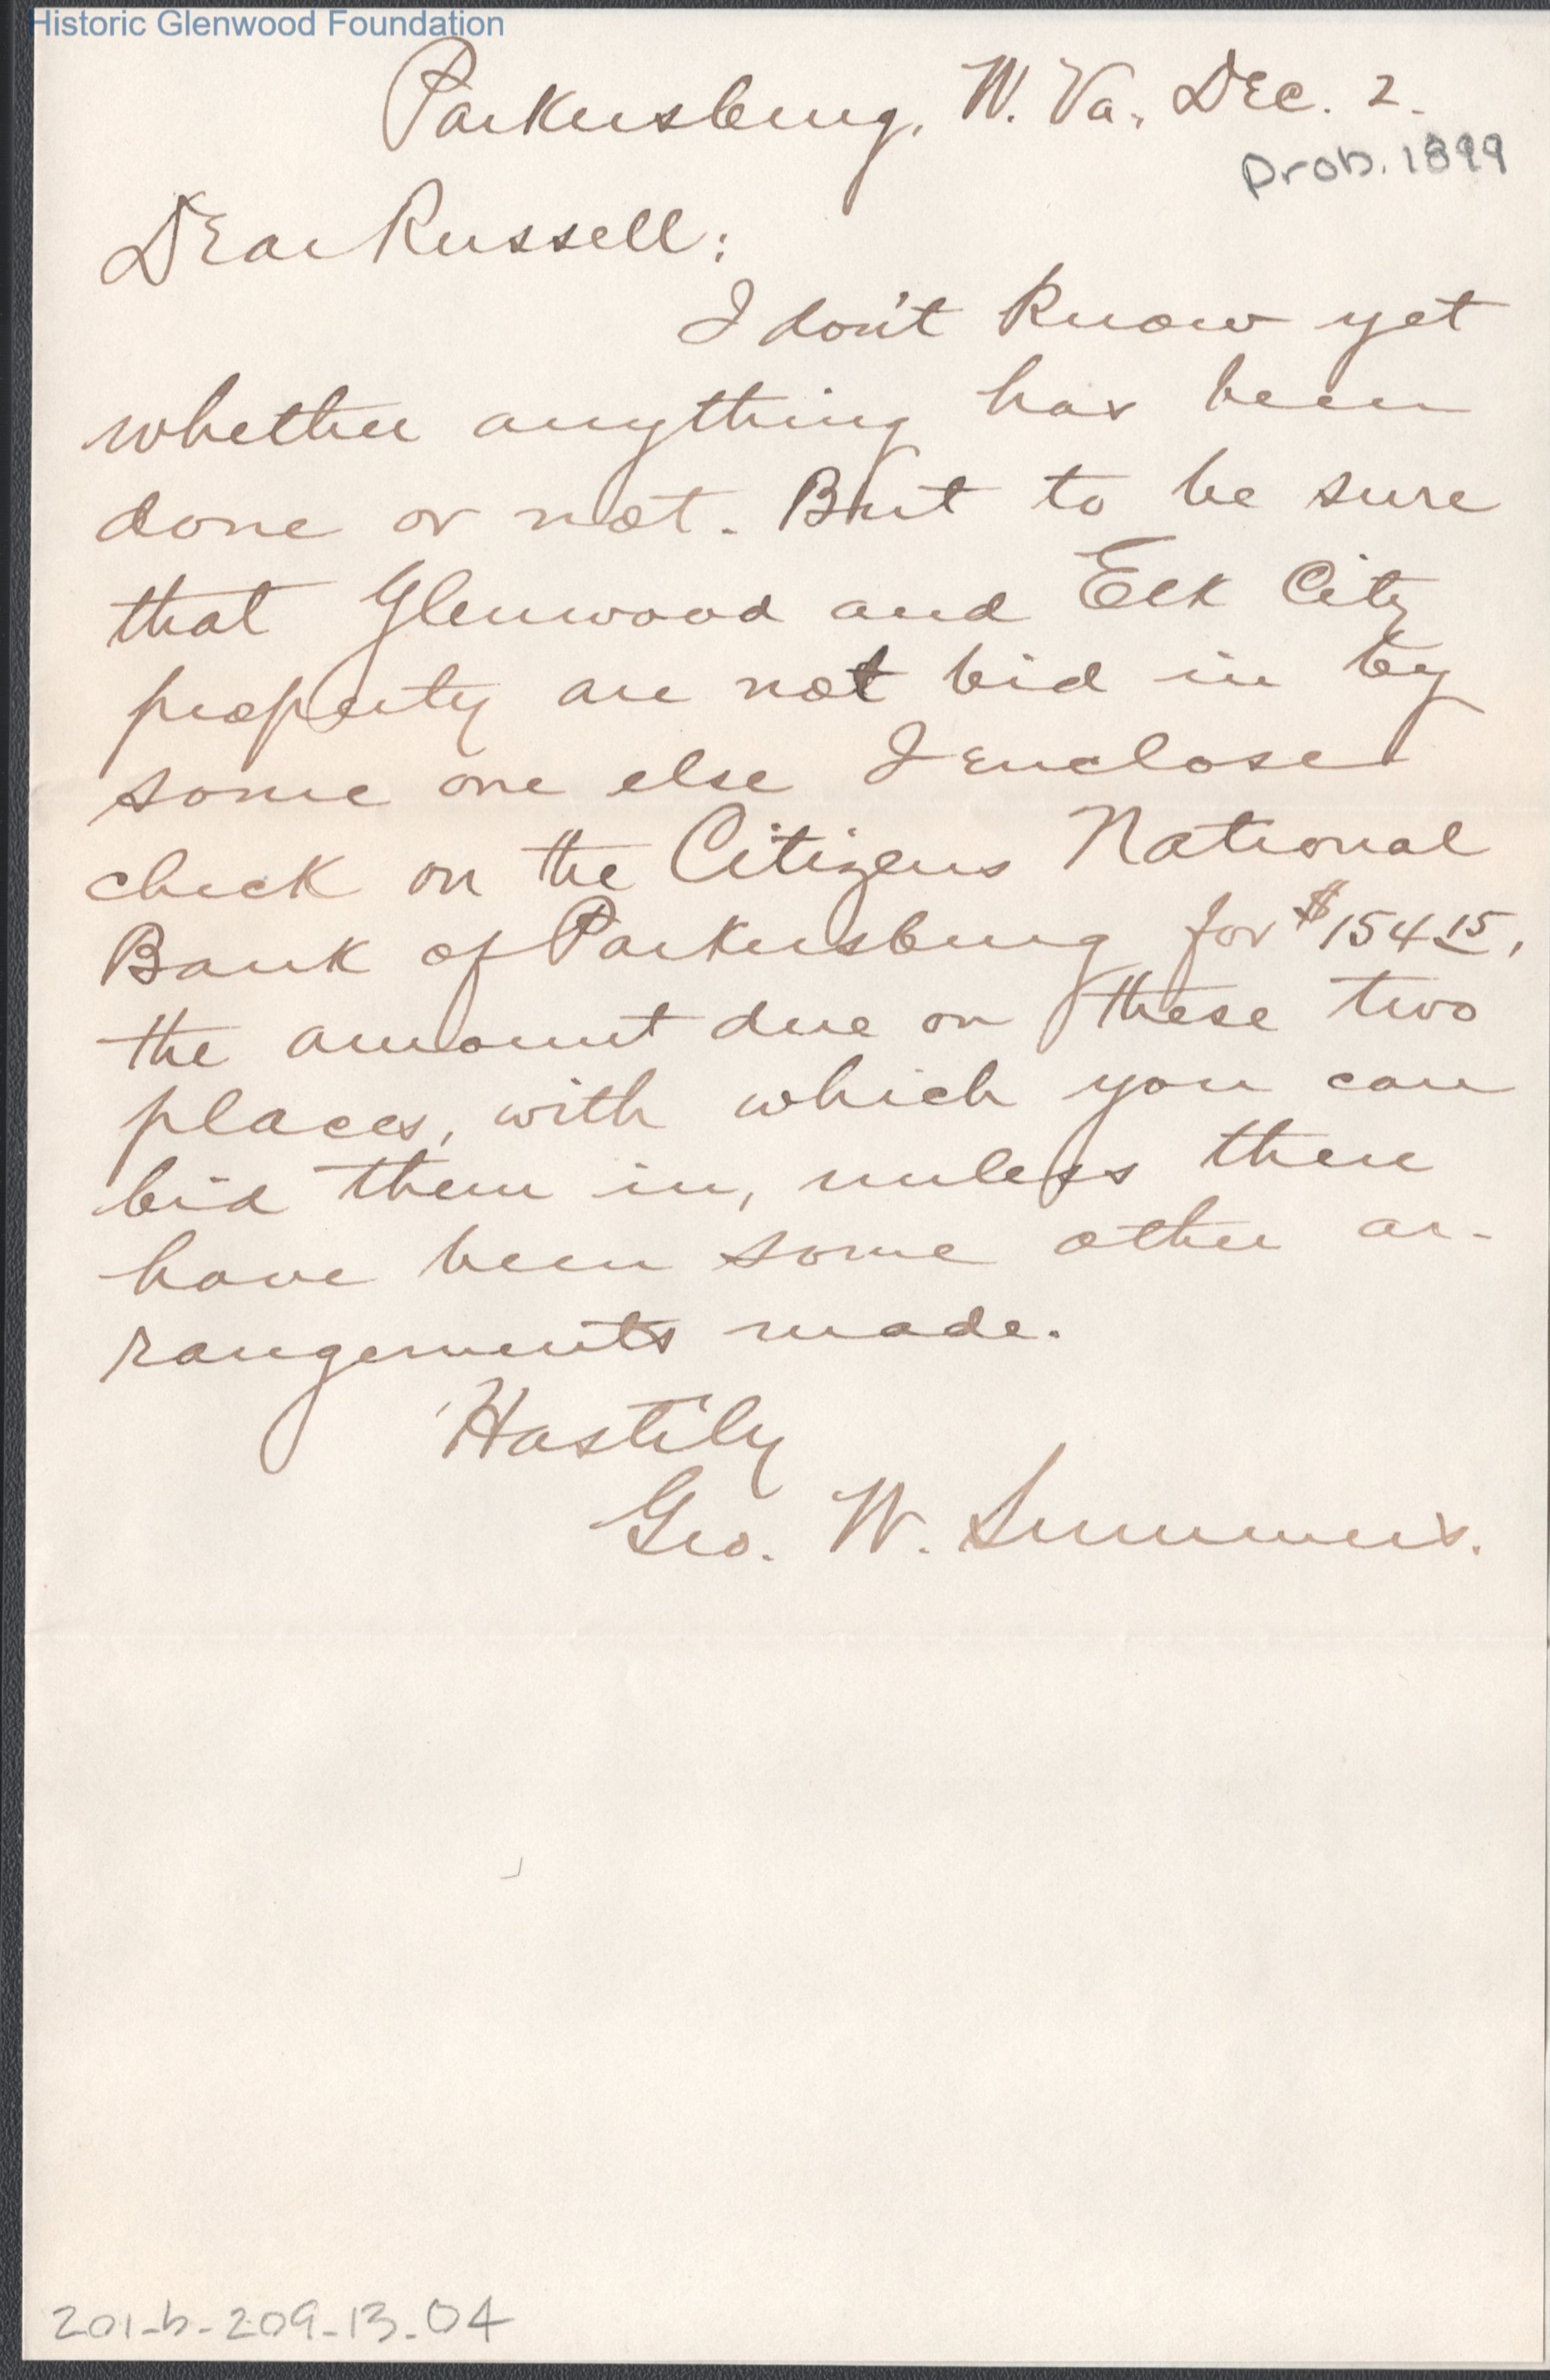 Historic Glenwood Foundation
Parkersburg, W. Va., Dec. 2.
Prob. 1899
Dear Russell:
I don't know yet
whether anything has been
done or not. But to be sure
that Glenwood and Elk City
property are not bid in by
some one else I enclose
check on the Citizens National
Bank of Parkersburg for $154 15,
the amount due on these two
places, with which you can
bid them in, unless there
have been some other ar-
rangements made.
Hastily
Geo. W. Summers.
201-b-209-13-04